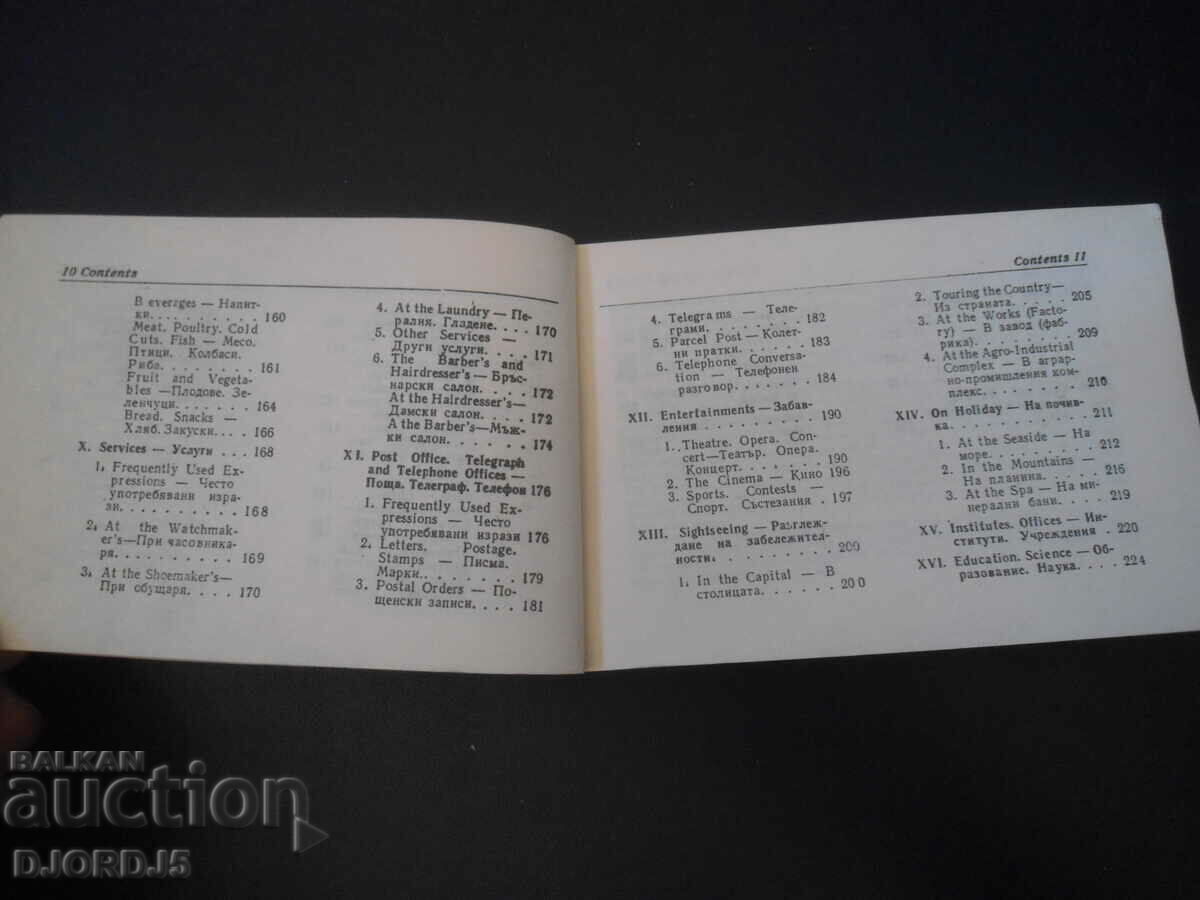 10 Contents
B everages — Напит-
ки. . . . . . . . . . 160
Meat. Poultry. Cold
Cuts. Fish — Месо.
Птици. Колбаси.
Риба. . . . . . . . . 161
Fruit and Vegeta-
bles —Плодове. Зе-
ленчуци. . . . . . . 164
Bread. Snacks —
Хляб. Закуски. . . . 166
X. Services — Услуги . . 168
1. Frequently Used Ex-
pressions — Често
употребявани изра-
зи. . . . . . . . . . 168
2. At the Watchmak-
er's—При часовника-
ря. . . . . . . . . . 169
3. At the Shoemaker's—
При обущаря. . . . 170
4. At the Laundry — Пе-
ралня. Гладене. . . . 170
5. Other Services —
Други услуги. . . . 171
6. The Barber's and
Hairdresser's — Бръс-
нарски салон. . . . . 172
At the Hairdresser's—
Дамски салон. . . . 172
A the Barber's—Мъж-
ки салон. . . . . . . 174
XI. Post Office. Telegraph
and Telephone Offices —
Поща. Телеграф. Телефон 176
1. Frequently Used Ex-
pressions — Често
употребявани изрази 176
2. Letters. Postage.
Stamps — Писма.
Марки. . . . . . . . . 179
3. Postal Orders — По-
щенски записи. . . . 181
Contents 11
4. Telegra ms — Теле-
грами. . . . . . . . . 182
5. Parcel Post — Колет-
ни пратки. . . . . . 183
6. Telephone Conversa-
tion — Телефонен
разговор. . . . . . . 184
XII. Entertainments — Забав-
ления . . . . . . . . . 190
1. Theatre. Opera. Con-
cert—Театър. Опера.
Концерт. . . . . . . . 190
2. The Cinema — Кино 196
3. Sports. Contests —
Спорт. Състезания . 197
XIII. Sightseeing — Разглеж-
дане на забележител-
ности. . . . . . . . . 200
1. In the Capital — В
столицата. . . . . . . 200
2. Touring the Country—
Из страната. . . . . . 205
3. At the Works (Facto-
ry) — В завод (фаб-
рика). . . . . . . . . 209
4. At the Agro-Industrial
Complex — В аграр-
но-промишления ком-
плекс. . . . . . . . . 210
XIV. On Holiday — На почив-
ка. . . . . . . . . . . 211
1. At the Seaside — На
море. . . . . . . . . . 212
2. In the Mountains —
На планина. . . . . . 216
3. At the Spa — На ми-
нерални бани. . . . . 219
XV. Institutes. Offices — Ин-
ститути. Учреждения . 220
XVI. Education. Science — Об-
разование. Наука. . . . 224
BALKAN
auction
DJORDJ5